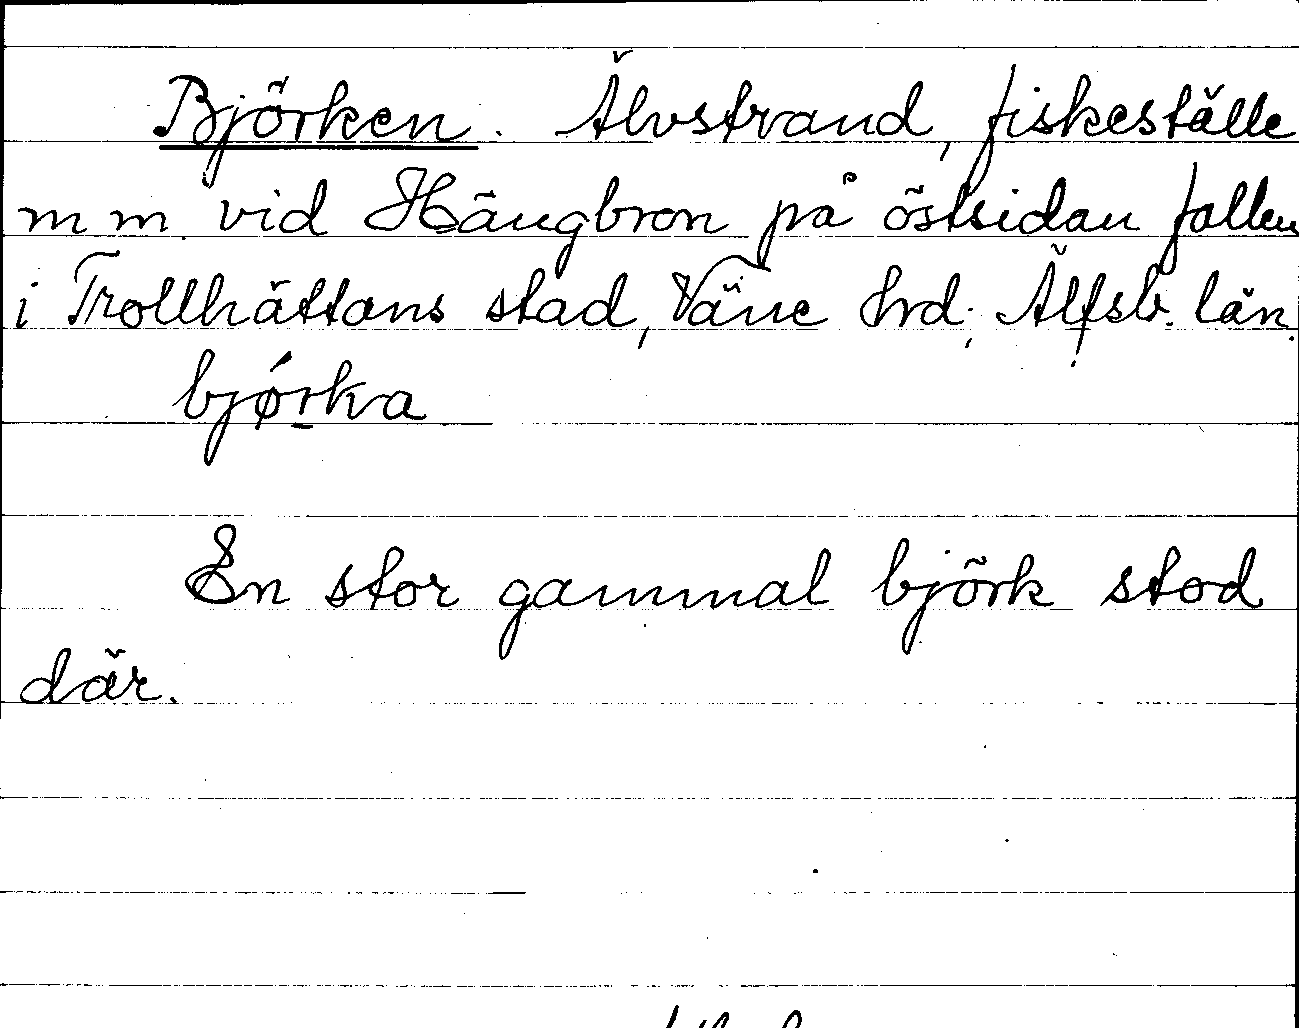 Björken. Älvstrand, fiskeställe
m m. vid Hängbron på östsidan fallen
i Trollhättans stad, Väne hrd; Älfsb. län.
bjǿrka
En stor gammal björk stod
där.